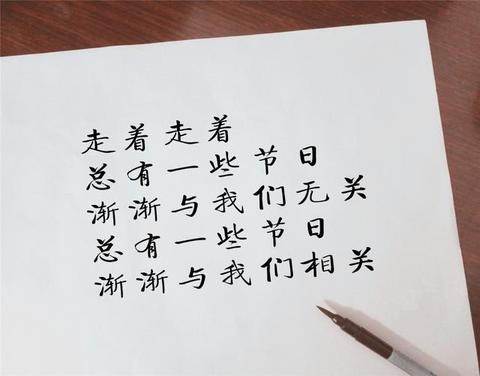 走着走着
总有一些节日
渐渐与我们无关
总有一些节日
渐渐与我们相关